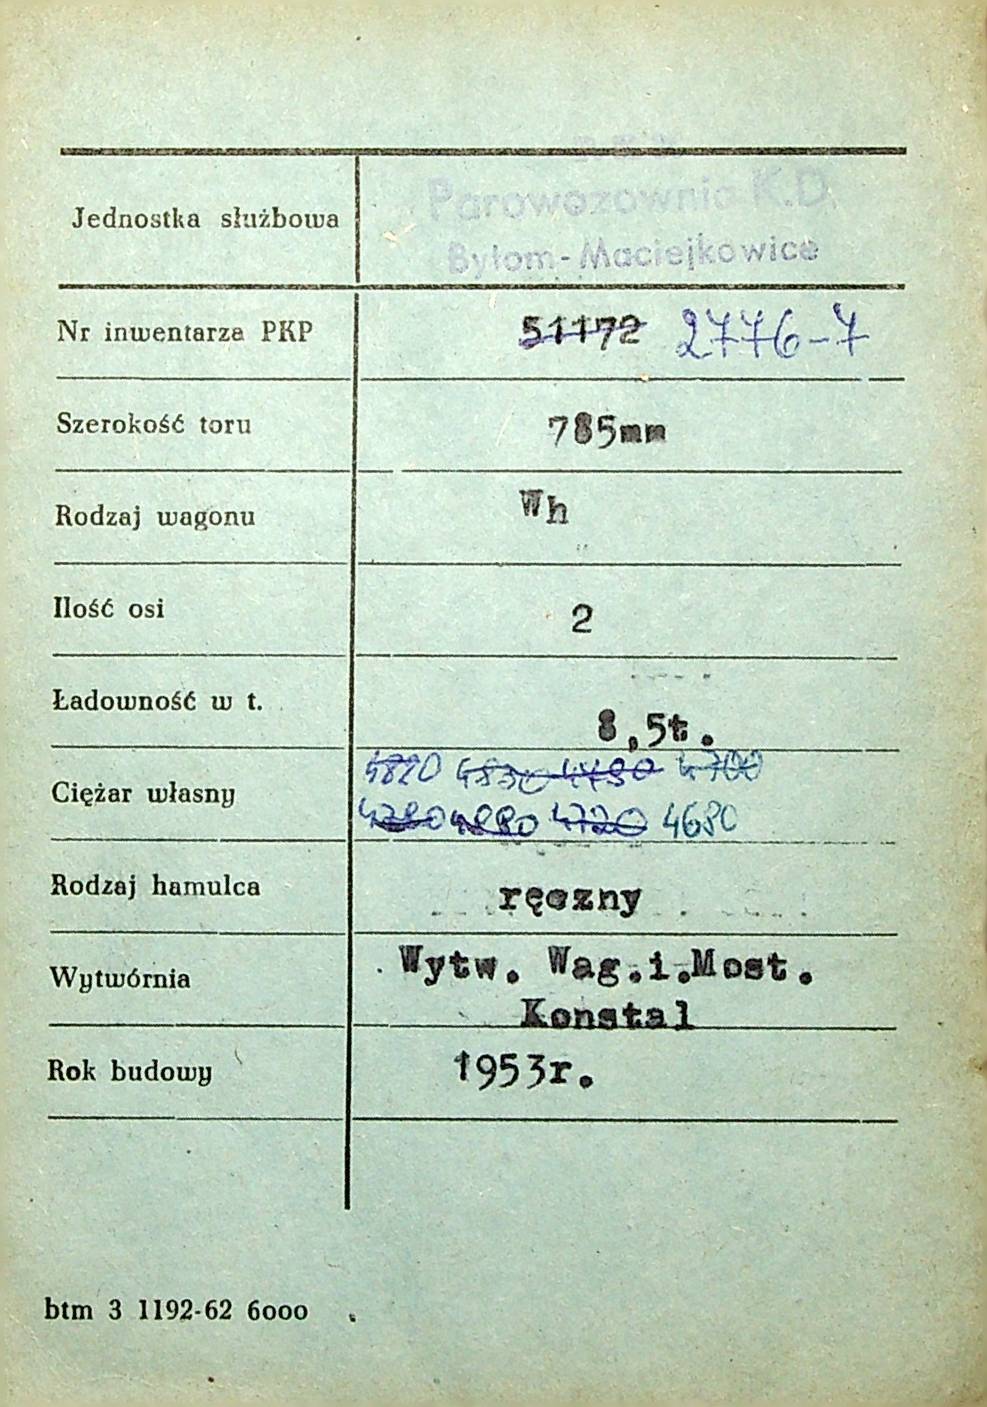 Parowozownia K.D.
Jednostka służbowa
Bytom-Maciejkowice
Nr inwentarza PKP 51172 2776-7
Szerokość toru 785mm
Rodzaj wagonu Wh
Ilość osi 2
Ładowność w t. 8,5t.
4820 4830 4780 4700
Ciężar własny
4880 4720 4680
Rodzaj hamulca ręczny
Wytw. Wag.i.Most.
Wytwórnia
Konstal
Rok budowy 1953r.
btm 3 1192-62 6000